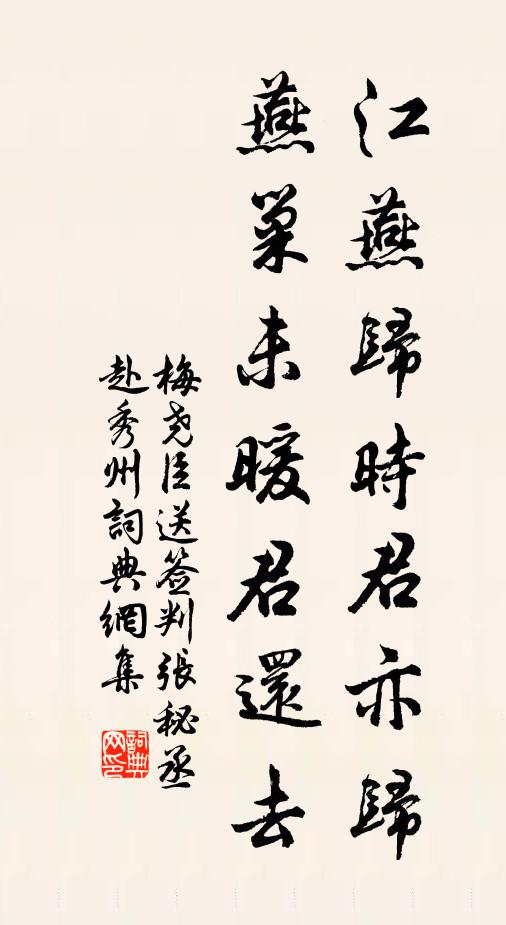 江燕歸時君亦歸
燕巢未暖君還去
梅尧臣送签判張秘丞
赴秀州詞典網集
詞典
网印